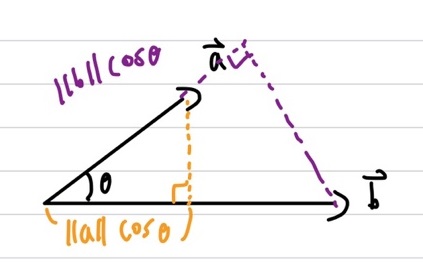 ||b|| cosθ
a⃗
θ
b⃗
||a|| cosθ